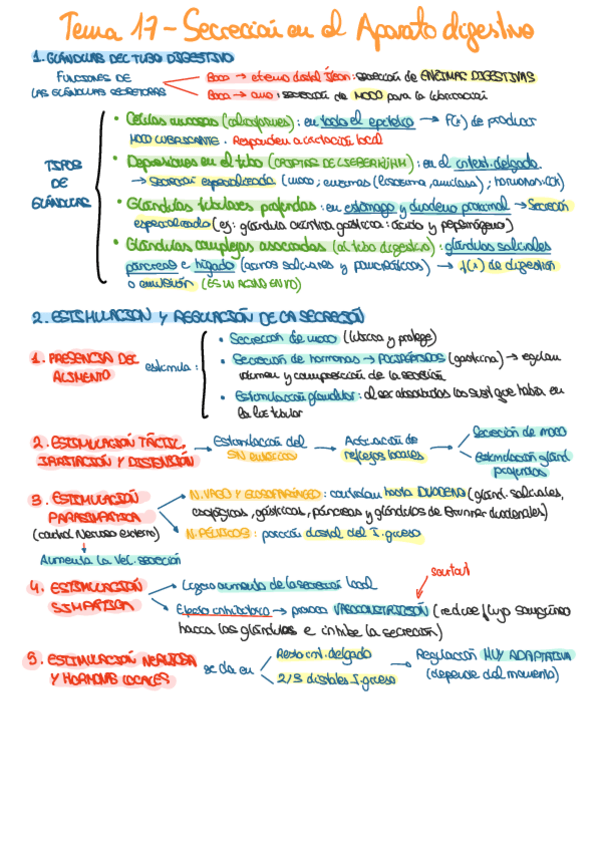 Tema 17 - Secreción en el Aparato digestivo
1. GLÁNDULAS DEL TUBO DIGESTIVO
FUNCIONES DE
LAS GLÁNDULAS SECRETORAS
Boca → extremo distal Íleon: secreción de ENZIMAS DIGESTIVAS
Boca → ano: secreción de MOCO para la lubricación
TIPOS
DE
GLÁNDULAS
• Células mucosas (caliciformes): en todo el epitelio → f(x) de producir
MOCO LUBRICANTE. Responden a irritación local
• Depresiones en el tubo (CRIPTAS DE LIEBERKÜHN): en el intest. delgado
→ Secreción especializada (moco; enzimas (lisozima, amilasa); hormonas: CCK)
• Glándulas tubulares profundas: en estómago y duodeno proximal → Secreción
especializada (ej: glándula oxíntica gástrica: ácido y pepsinógeno)
• Glándulas complejas asociadas (al tubo digestivo): glándulas salivales
páncreas e hígado (acinos salivares y pancreáticos) → f(x) de digestión
o emulsión (ES UN ACINO EN YO)
2. ESTIMULACION Y REGULACIÓN DE LA SECRECIÓN
1. PRESENCIA DEL
ALIMENTO
estimula:
• Secreción de moco (lubrica y protege)
• Secreción de hormonas → POLIPÉPTIDOS (gastrina) → regulan
volumen y composición de la secreción
• Estimulación glandular: al ser absorbidos las sust que había en
la luz tubular
2. ESTIMULACIÓN TÁCTIL,
IRRITACIÓN Y DISTENSIÓN
→ Estimulación del
SN entérico
→ Activación de
reflejos locales
Secreción de moco
Estimulación glánd.
profundas
3. ESTIMULACIÓN
PARASIMPÁTICA
(control Nervioso externo)
Aumenta la Vel. secreción
N. VAGO Y GLOSOFARÍNGEO: controlan hasta DUODENO (glánd. salivales,
esofágicas, gástricas, páncreas y glándulas de Brunner duodenales)
N. PÉLVICOS: porción distal del I. grueso
4. ESTIMULACIÓN
SIMPÁTICA
Ligero aumento de la secreción local
Efecto inhibitorio → provoca VASOCONSTRICCIÓN (reduce flujo sanguíneo
hacia las glándulas e inhibe la secreción)
5. ESTIMULACIÓN NERVIOSA
Y HORMONAS LOCALES
se da en
Resto int. delgado
2/3 distales I. grueso
→ Regulación MUY ADAPTATIVA
(depende del momento)